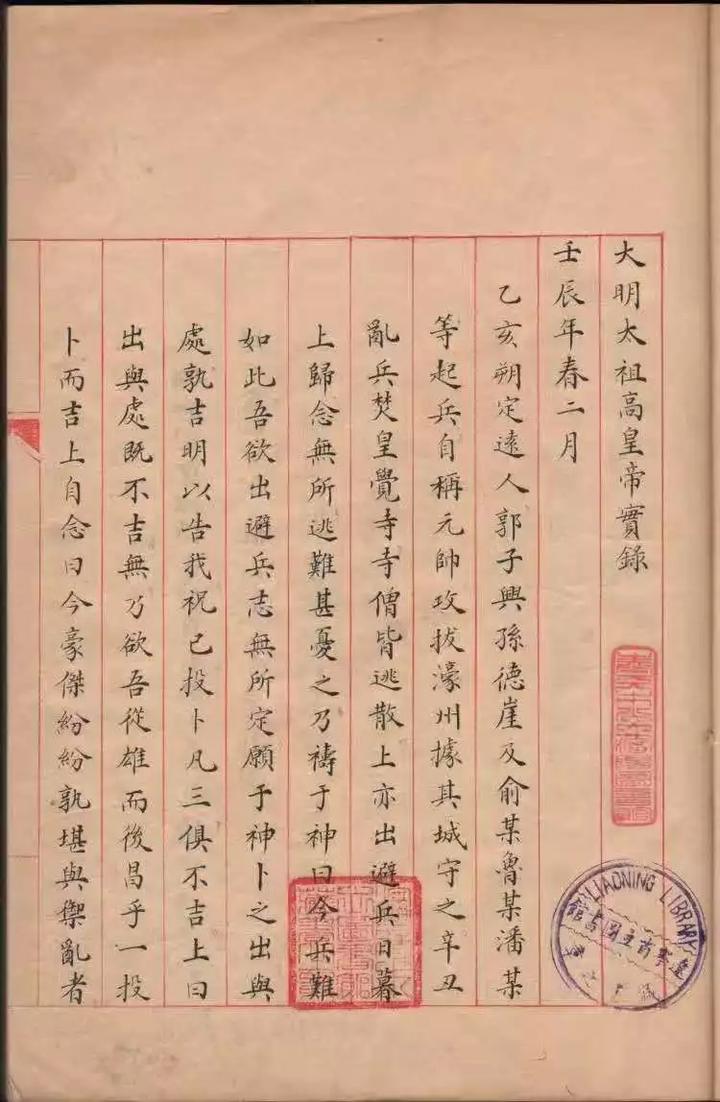 大明太祖高皇帝實錄
壬辰年春二月
乙亥朔定遠人郭子興孫德崖及俞某魯某潘某
等起兵自稱元帥攻拔濠州據其城守之辛丑
亂兵焚皇覺寺寺僧皆逃散上亦出避兵日暮
上歸念無所逃難甚憂之乃禱于神曰今兵難
如此吾欲出避兵志無所定願于神卜之出與
處孰吉明以告我祝已投卜凡三俱不吉上曰
出與處既不吉無乃欲吾從雄而後昌乎一投
卜而吉上自念曰今豪傑紛紛孰堪與禦亂者
LIAONING LIBRARY